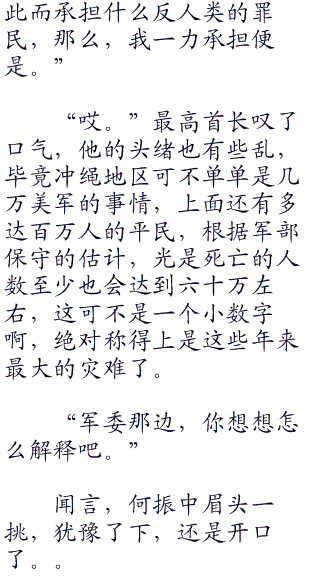 此而承担什么反人类的罪
民，那么，我一力承担便
是。”
“哎。”最高首长叹了
口气，他的头绪也有些乱，
毕竟冲绳地区可不单单是几
万美军的事情，上面还有多
达百万人的平民，根据军部
保守的估计，光是死亡的人
数至少也会达到六十万左
右，这可不是一个小数字
啊，绝对称得上是这些年来
最大的灾难了。
“军委那边，你想想怎
么解释吧。”
闻言，何振中眉头一
挑，犹豫了下，还是开口
了。。